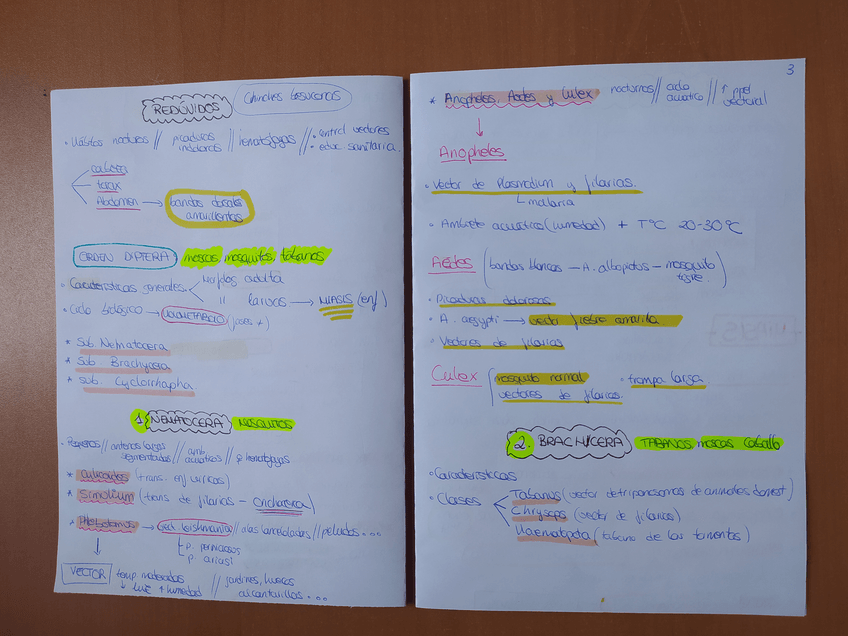 REDÚVIDOS Chinches besuconas
· Hábitos nocturnos // picaduras indoloras // hematófagas // · control vectores
· educ. sanitaria.
cabeza
tórax
Abdomen → bandas dorsales amarillentas
ORDEN DIPTERA moscas, mosquitos, tábanos
· Características generales
Morfolog adulta
" larvas → MIASIS (enf)
· Ciclo biológico → HOLOMETÁBOLO (fases ≠)
* Sub. Nematocera
* Sub. Brachycera
* Sub. Cyclorrhapha.
1 NEMATOCERA MOSQUITOS
· Pequeños // antenas largas segmentadas // amb. acuáticos // ♀ hematófagas
* Culicoides (trans. enf víricas)
* Simulium (trans de filarias - oncocerca)
* Phlebotomus → vect leishmania // alas lanceoladas // peludos...
P. perniciosus
P. ariasi
VECTOR temp moderadas
↓ luz ↑ humedad // jardines, huecos alcantarillas...
3
* Anopheles, Aedes y Culex nocturnos // ciclo acuático // ↑ papel vectorial
Anopheles
· Vector de Plasmodium y filarias.
malaria
· Ambiente acuático (humedad) + Tªc 20-30ºC
Aedes (bandas blancas - A. albopictus - mosquito tigre)
· Picaduras dolorosas
· A. aegypti → vector fiebre amarilla.
· Vectores de filarias
Culex mosquito normal · trompa larga
vectores de filarias.
2. BRACHYCERA TABANOS, moscas caballo
· Características
· Clases
Tabanus (vector de triponosomas de animales domest.)
Chrysops (vector de filarias)
Haematopota (tábano de las tormentas)